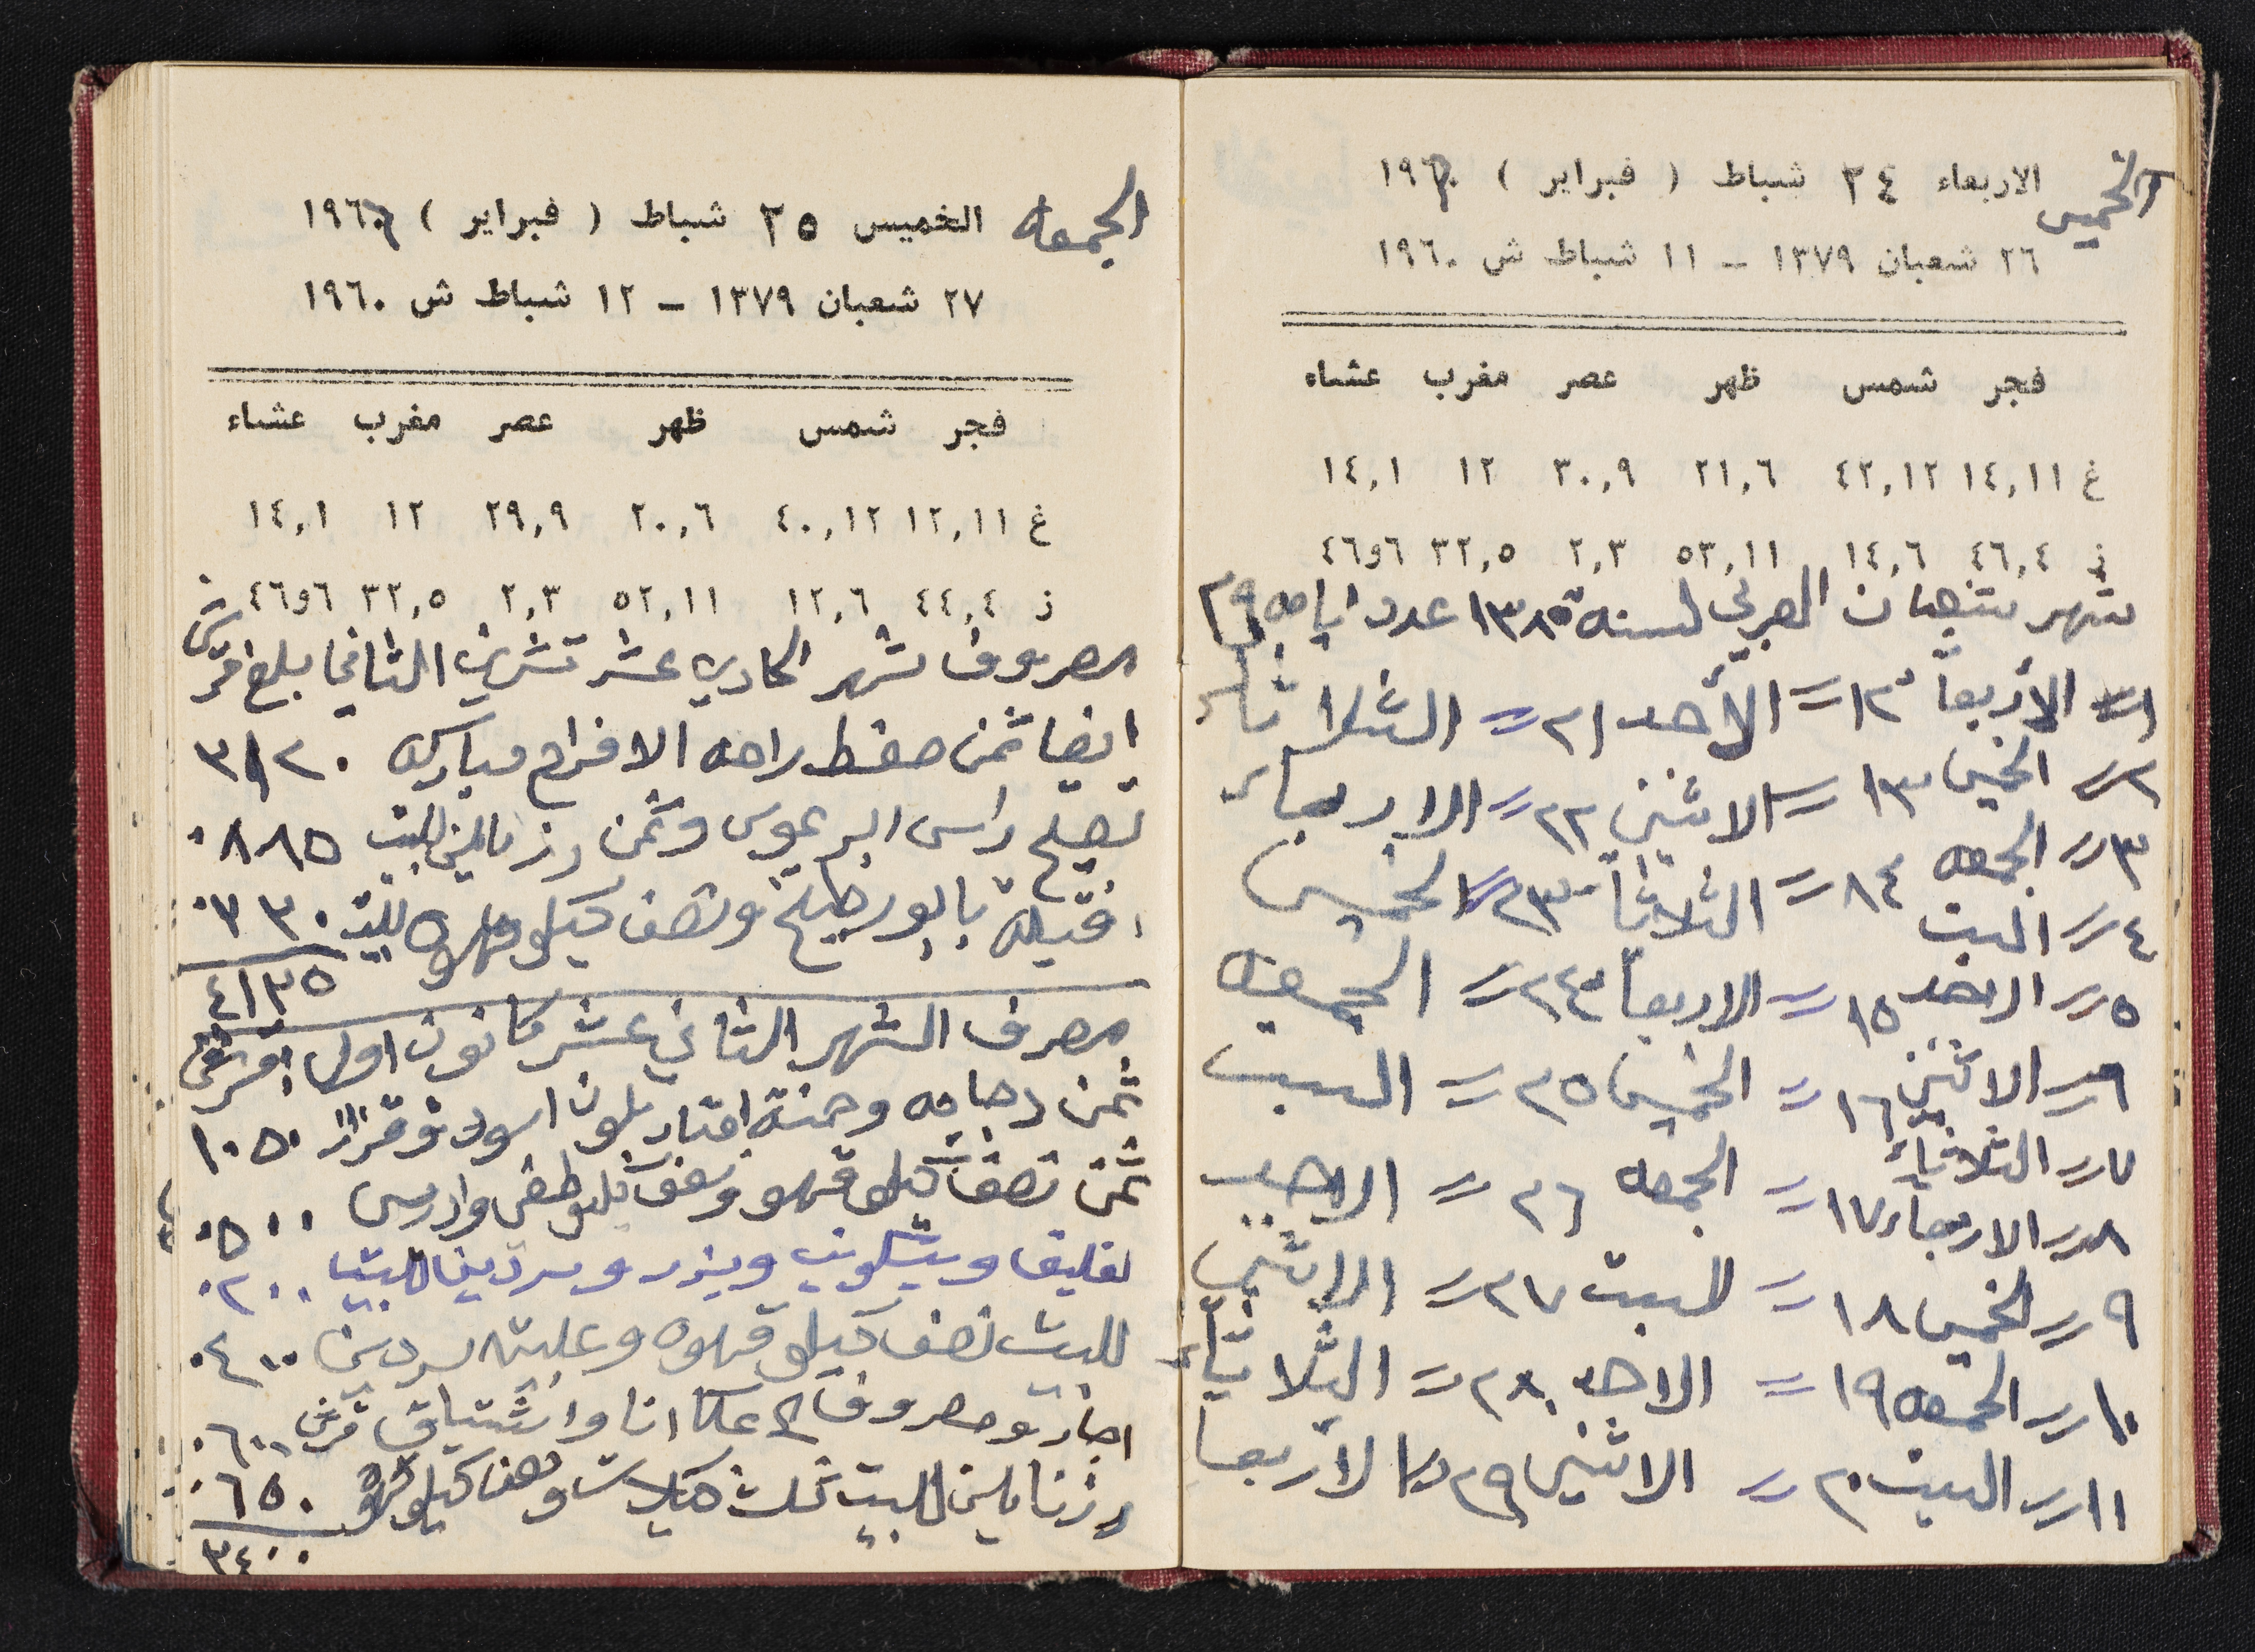 الخميس الاربعاء ٢٤ شباط ( فبراير ) ١٩٦٠
٢٦ شعبان ١٣٧٩ – ١١ شباط ش ١٩٦٠
فجر شمس ظهر عصر مغرب عشاء
غ ١٤,١١ ٤٢,١٢ ٢١,٦ ٣٠,٩ ١٢ ١٤,١
ز ٤٦,٤ ١٤,٦ ٥٣,١١ ٢,٣ ٣٢,٥ ٤٦و٦
شهر شعبان العربي لسنة ١٣٨٥ عدد ايامه ٢٩
١ = الأربعاً ١٢ = الأحد ٢١ = الثلاثاء
٢ = الخميس ١٣ = الاثنين ٢٢ = الاربعاء
٣ = الجمعه ١٤ = الثلاثاً ٢٣ = الخميس
٤ = السبت
٥ = الاحد ١٥ = الاربعاً ٢٤ = الجمعه
٦ = الاثنين ١٦ = الخميس ٢٥ = السبت
٧ = الثلاثاء
٨ = الاربعاء ١٧ = الجمعه ٢٦ = الاحد
٩ = الخميس ١٨ = السبت ٢٧ = الاثنين
١٠ = الجمعه ١٩ = الاحد ٢٨ = الثلاثاء
١١ = السبت ٢٠ = الاثنين ٢٩ = الاربعا
الجمعه الخميس ٢٥ شباط ( فبراير ) ١٩٦٦
٢٧ شعبان ١٣٧٩ – ١٢ شباط ش ١٩٦٠
فجر شمس ظهر عصر مغرب عشاء
غ ١٢,١١ ٤٠,١٢ ٢٠,٦ ٢٩,٩ ١٢ ١٤,١
ز ٤٤,٤ ١٢,٦ ٥٢,١١ ٢,٣ ٣٢,٥ ٤٦و٦
مصروف شهر الحادي عشر تشرين الثاني بلغ قرش
ايضا ثمن راحه الافراح مباركه ٣١٢٠
تصليح راس وثمن للبيت ٠٨٨٥
بابور ونصف كيلو قهوه للبيت ٠٧٣٠
٤١٣٥
مصرف الشهر الثاني عشر كانون اول قرش
ثمن اسود ١٠٥٠
ثمن نصف كيلو قهوه ونصف ٠٥٠٠
وبزر وسردين للبيت ٠٢٠٠
للبيت نصف كيلو قهوه وعلبة سردين ٠٤٠٠
ومصروف عكا انا واشتياق قرش ٠٦٠٠
للبيت ثلث كيلات ونصف كيلو قهوه ٠٦٥٠
٣٤٠٠